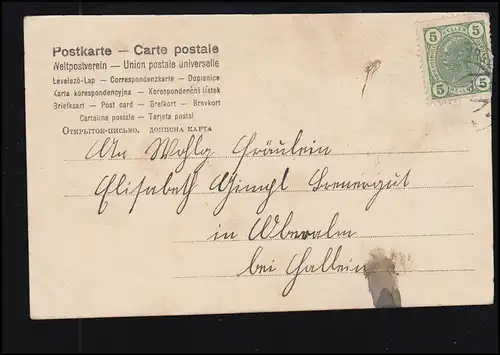 Postkarte — Carte postale
Weltpostverein — Union postale universelle
Levelező-Lap — Correspondenzkarte — Dopisnice
Karta korespondencyjna — Korespondenční lístek
Briefkaart — Post card — Brefkort — Brevkort
Cartolina postale — Tarjeta postal
Открытое-письмо. дописна карта
5 HELLER 5
5 HELLER 5
An Wohlg Fräulein
Elisabeth Gimpl Brenergut
in Oberalm
bei Hallein